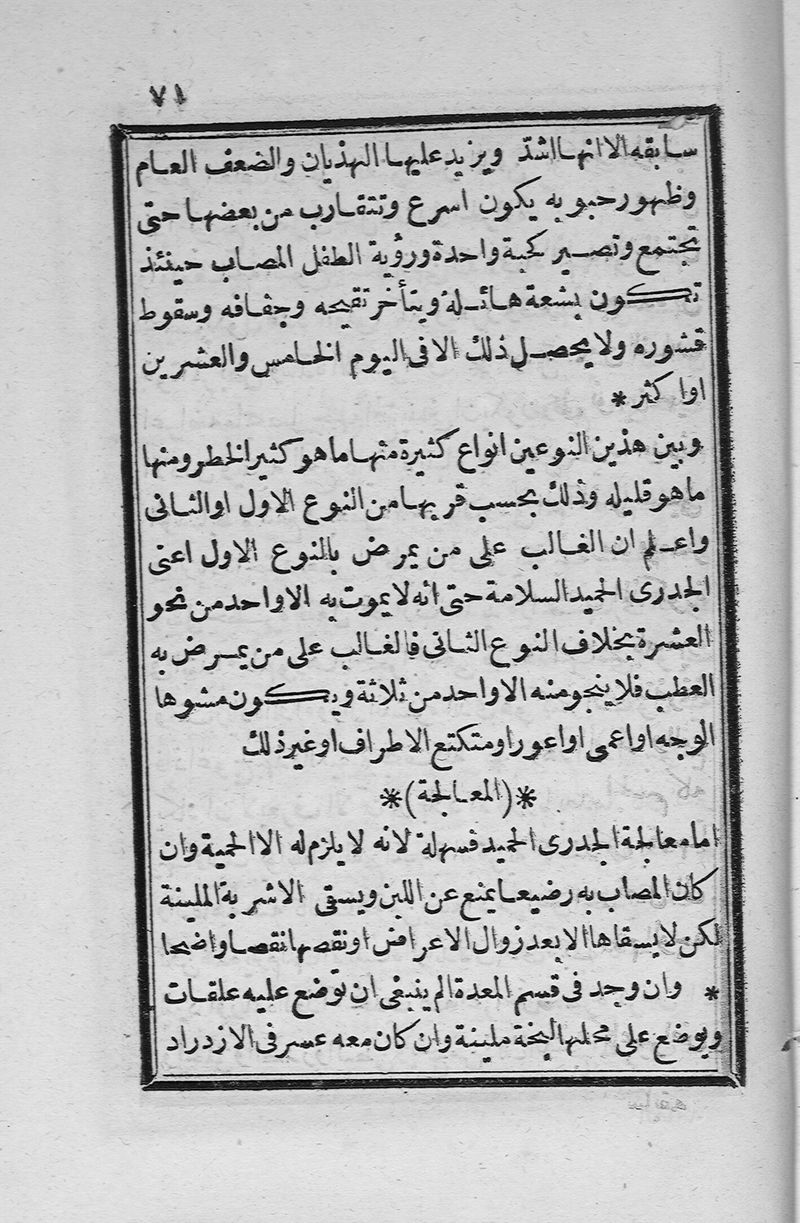 ٧١
سابقه الا انها اشد ويزيد عليها الهذيان والضعف العام
وظهور حبوبه يكون اسرع وتتقارب من بعضها حتى
تجتمع وتصير كحبة واحدة ورؤية الطفل المصاب حينئذ
تكون بشعة هائلة ويتأخر تقيحه وجفافه وسقوط
قشوره ولا يحصل ذلك الا فى اليوم الخامس والعشرين
او اكثر *
وبين هذين النوعين انواع كثيرة منها ما هو كثير الخطر ومنها
ما هو قليله وذلك بحسب قربها من النوع الاول او الثانى
واعلم ان الغالب على من يمرض بالنوع الاول اعنى
الجدرى الحميد السلامة حتى انه لا يموت به الا واحد من نحو
العشرة بخلاف النوع الثانى فالغالب على من يمرض به
العطب فلا ينجو منه الا واحد من ثلاثة ويكون مشوها
الوجه او اعمى او اعور او متكتع الاطراف او غير ذلك
*(المعالجة)*
اما معالجة الجدرى الحميد فسهلة لانه لا يلزم له الا الحمية وان
كان المصاب به رضيعا يمنع عن اللبن ويسقى الاشربة الملينة
لكن لا يسقاها الا بعد زوال الاعراض او نقصها نقصا واضحا
* وان وجد فى قسم المعدة الم ينبغى ان توضع عليه علقات
ويوضع على محلها لبخة ملينة وان كان معه عسر فى الازدراد